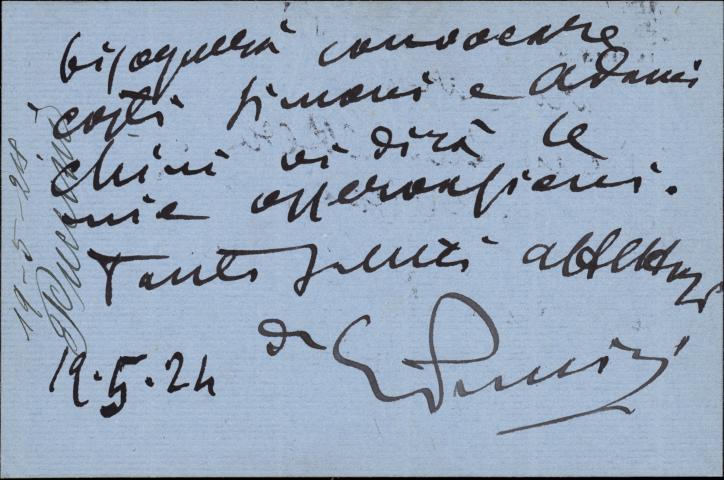 bisognerà convocare
costì Simoni e Adami
Chini vi dirà le
mie osservazioni.
Tanti saluti affettuosi
da GPuccini
19.5.24
19-5-24
GPuccini